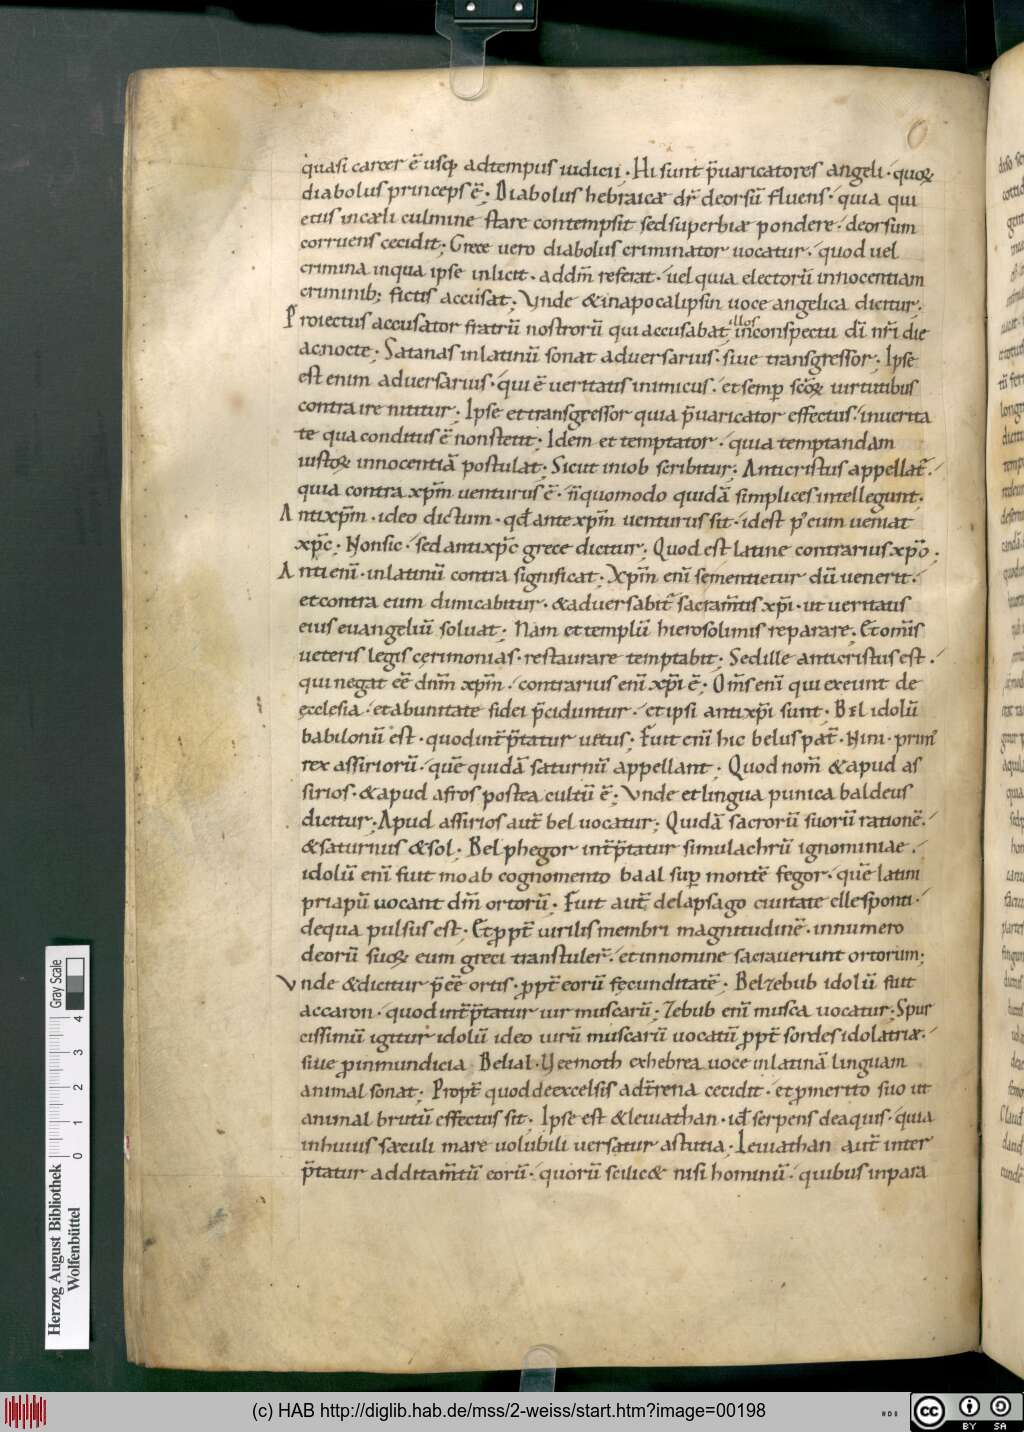 quasi carcer ē usq; adtempus iudicii. Hi sunt p̄uaricatores angeli. quoꝝ
diabolus princeps ē. Diabolus hebraicæ dr̄ deorsū fluens. quia qui
etus incæli culmine stare contempsit sed superbiæ pondere. deorsum
corruens cecidit; Grece uero diabolus criminator uocatur. quod uel
crimina inqua ipse inlicit. addm̄ referat. uel quia electorū innocentiam
criminib; fictis accusat; Vnde & inapocalipsin uoce angelica dicitur.
Proiectus accusator fratrū nostrorū qui accusabat illos inconspectu dī nr̄i die
acnocte; Satanas inlatinū sonat aduersarius. siue transgressor; Ipse
est enim aduersarius. qui ē ueritatis inimicus. et semp scōꝝ uirtutibus
contraire nititur; Ipse et transgressor quia p̄uaricator effectus. inuerita
te qua conditus ē non stetit; Idem et temptator. quia temptandam
iustoꝝ innocentiā postulat; Sicut iniob scribitur; Anticristus appellat̄.
quia contra xp̄m uenturus ē. n̄ quomodo quidā simplices intellegunt.
Antixp̄m. ideo dictum. qd̄ ante xp̄m uenturus sit. idest p' eum ueniat
xp̄c; Non sic. sed antixp̄c grece dicitur; Quod est latine contrarius xp̄o;
Anti enī. inlatinū contra significat; Xp̄m enī se mentietur dū uenerit.
et contra eum dimicabitur. & aduersabit̄ sacram̄tis xp̄i. ut ueritatis
eius euangeliū soluat; Nam et templū hierosolimis reparare. Et om̄s
ueteris legis cęrimonias. restaurare temptabit; Sed ille anticristus est.
qui negat eē dn̄m xp̄m. contrarius enī xp̄i ē; Om̄s enī qui exeunt de
ecclesia. et abunitate fidei p̄ciduntur. et ipsi antixp̄i sunt. Bel idolū
babilonū est. quod int̄p̄tatur uetus; Fuit enī hic belus pat̄. Nini. prim'
rex assiriorū. quē quidā saturnū appellant. Quod nom̄ & apud as
sirios. & apud afros postea cultū ē; Vnde et lingua punica bal deus
dicitur; Apud assirios aut̄ bel uocatur; Quidā sacrorū suorū rationē.
& saturnus & sol. Belphegor int̄p̄tatur simulachrū ignominiae.
idolū enī fuit moab cognomento baal sup montē fegor. quē latini
priapū uocant dm̄ ortorū; Fuit aut̄ delapsago ciuitate ellesponti.
dequa pulsus est; Et ppt̄ uirilis membri magnitudinē. innumero
deorū suoꝝ eum greci transtuler̄. et innomine sacrauerunt ortorum;
Vnde & dicitur p̄eē ortis. ppt̄ eorū fęcunditatē. Belzebub idolū fuit
accaron. quod int̄p̄tatur uir muscarū; Zebub enī musca uocatur. Spur
cissimū igitur idolū ideo uirū muscarū uocatū ppt̄ sordes idolatriæ.
siue p inmundicia Belial. Veemoth exhebrea uoce inlatinā linguam
animal sonat; Propt̄ quod de excelsis adt̄rena cecidit. et p merito suo ut
animal brutū effectus sit; Ipse est & leuiathan. id̄ serpens deaquis. quia
inhuius sæculi mare uolubili uersatur astutia; Leuiathan aut̄ inter
p̄tatur additam̄tū eorū. quorū scilic& nisi hominū. quibus inpara
Herzog August Bibliothek
Wolfenbüttel
0 1 2 3 4
Gray Scale
(c) HAB http://diglib.hab.de/mss/2-weiss/start.htm?image=00198
HDB
cc BY SA